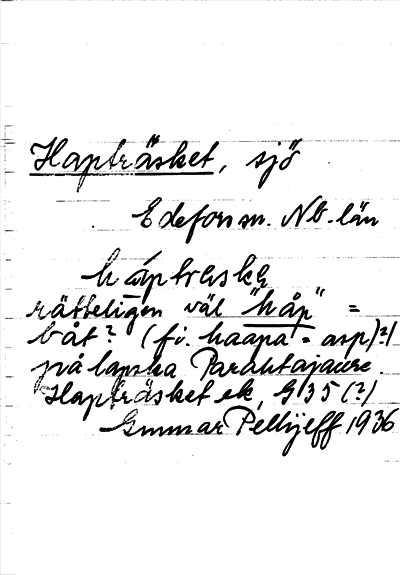 Hapträsket, sjö
Edefors sn. Nb. län
háptraskạ
rätteligen väl "håp" =
båt? (fi. haapa = asp)?)
på lapska Parahtajaure.
Hapträsket ek, G 35 (?)
Gunnar Pellijeff 1936